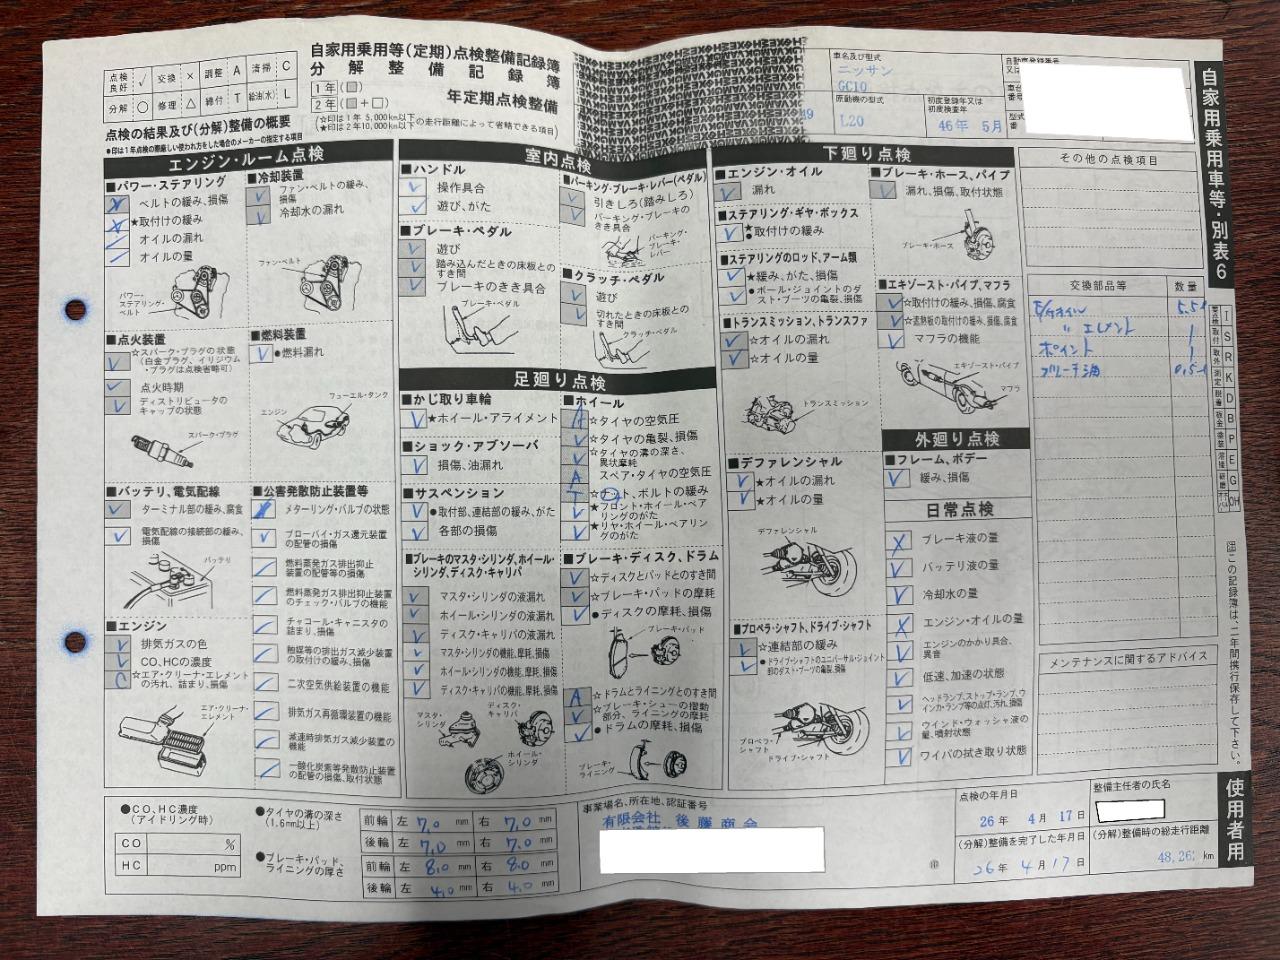 自家用乗用等(定期)点検整備記録簿
分解整備記録簿
点検良好 ✓ 交換 × 調整 A 清掃 C
分解 ○ 修理 △ 締付 T 給油(水) L
1年(□)
2年(□+□)
年定期点検整備
(☆印は1年 5,000km以下
★印は2年10,000km以下の走行距離によって省略できる項目)
点検の結果及び(分解)整備の概要
●印は1年点検の際厳しい使われ方をした場合のメーカーの指定する項目
車名及び型式
ニッサン
GC10
原動機の型式
L20
初度登録年又は
初度検査年
46年 5月
自動車登録番号
自家用乗用車等・別表6
エンジン・ルーム点検
■パワー・ステアリング
ベルトの緩み、損傷
★取付けの緩み
オイルの漏れ
オイルの量
パワー・
ステアリング・
ベルト
■冷却装置
ファン・ベルトの緩み、
損傷
冷却水の漏れ
ファン・ベルト
■点火装置
☆スパーク・プラグの状態
(白金プラグ、イリジウム
・プラグは点検省略可)
点火時期
ディストリビュータの
キャップの状態
スパーク・プラグ
■燃料装置
●燃料漏れ
フューエル・タンク
エンジン
■バッテリ、電気配線
ターミナル部の緩み、腐食
電気配線の接続部の緩み、
損傷
バッテリ
■エンジン
排気ガスの色
CO、HCの濃度
☆エア・クリーナ・エレメント
の汚れ、詰まり、損傷
エア・クリーナ・
エレメント
■公害発散防止装置等
メターリング・バルブの状態
ブローバイ・ガス還元装置
の配管の損傷
燃料蒸発ガス排出抑止
装置の配管等の損傷
燃料蒸発ガス排出抑止装置
のチェック・バルブの機能
チャコール・キャニスタの
詰まり、損傷
触媒等の排出ガス減少装置
の取付けの緩み、損傷
二次空気供給装置の機能
排気ガス再循環装置の機能
減速時排気ガス減少装置の
機能
一酸化炭素等発散防止装置
の配管の損傷、取付状態
室内点検
■ハンドル
操作具合
遊び、がた
■ブレーキ・ペダル
遊び
踏み込んだときの床板との
すき間
ブレーキのきき具合
ブレーキ・ペダル
■パーキング・ブレーキ・レバー(ペダル)
引きしろ(踏みしろ)
パーキング・ブレーキの
きき具合
パーキング・
ブレーキ・
レバー
■クラッチ・ペダル
遊び
切れたときの床板との
すき間
クラッチ・ペダル
足廻り点検
■かじ取り車輪
★ホイール・アライメント
■ショック・アブソーバ
損傷、油漏れ
■サスペンション
●取付部、連結部の緩み、がた
各部の損傷
■ブレーキのマスタ・シリンダ、ホイール・
シリンダ、ディスク・キャリパ
マスタ・シリンダの液漏れ
ホイール・シリンダの液漏れ
ディスク・キャリパの液漏れ
マスタ・シリンダの機能、摩耗、損傷
ホイール・シリンダの機能、摩耗、損傷
ディスク・キャリパの機能、摩耗、損傷
マスタ・
シリンダ
ディスク・
キャリパ
ホイール・
シリンダ
■ホイール
☆タイヤの空気圧
☆タイヤの亀裂、損傷
☆タイヤの溝の深さ、
異状摩耗
スペア・タイヤの空気圧
☆ナット、ボルトの緩み
★フロント・ホイール・ベア
リングのがた
★リヤ・ホイール・ベアリン
グのがた
■ブレーキ・ディスク、ドラム
☆ディスクとパッドとのすき間
☆ブレーキ・パッドの摩耗
●ディスクの摩耗、損傷
ブレーキ・パッド
☆ドラムとライニングとのすき間
☆ブレーキ・シューの摺動
部分、ライニングの摩耗
●ドラムの摩耗、損傷
ブレーキ・
ライニング
下廻り点検
■エンジン・オイル
漏れ
■ステアリング・ギヤ・ボックス
★取付けの緩み
■ステアリングのロッド、アーム類
★緩み、がた、損傷
●ボール・ジョイントのダ
スト・ブーツの亀裂、損傷
■トランスミッション、トランスファ
☆オイルの漏れ
☆オイルの量
トランスミッション
■デファレンシャル
★オイルの漏れ
★オイルの量
デファレンシャル
■プロペラ・シャフト、ドライブ・シャフト
☆連結部の緩み
●ドライブ・シャフトのユニバーサル・ジョイント
部のダスト・ブーツの亀裂、損傷
プロペラ・
シャフト
ドライブ・シャフト
■ブレーキ・ホース、パイプ
漏れ、損傷、取付状態
ブレーキ・ホース
■エキゾースト・パイプ、マフラ
☆取付けの緩み、損傷、腐食
☆遮熱板の取付けの緩み、損傷、腐食
マフラの機能
エキゾースト・パイプ
マフラ
外廻り点検
■フレーム、ボデー
緩み、損傷
日常点検
ブレーキ液の量
バッテリ液の量
冷却水の量
エンジン・オイルの量
エンジンのかかり具合、
異音
低速、加速の状態
ヘッドランプ、ストップ・ランプ、ウ
インカ・ランプ等の点灯、汚れ、損傷
ウインド・ウォッシャ液の
量、噴射状態
ワイパの拭き取り状態
その他の点検項目
交換部品等 数量
〃 エレメント 1
ポイント 1
メンテナンスに関するアドバイス
この記録簿は、二年間携行保存して下さい。
使用者用
●CO、HC濃度
(アイドリング時)
CO %
HC ppm
●タイヤの溝の深さ
(1.6mm以上)
●ブレーキ・パッド、
ライニングの厚さ
前輪 左 7.0 mm 右 7.0 mm
後輪 左 7.0 mm 右 7.0 mm
前輪 左 8.0 mm 右 8.0 mm
後輪 左 4.0 mm 右 4.0 mm
事業場名、所在地、認証番号
有限会社 後藤商会
点検の年月日
26年 4月 17日
(分解)整備を完了した年月日
26年 4月 17日
整備主任者の氏名
(分解)整備時の総走行距離
48,26 km